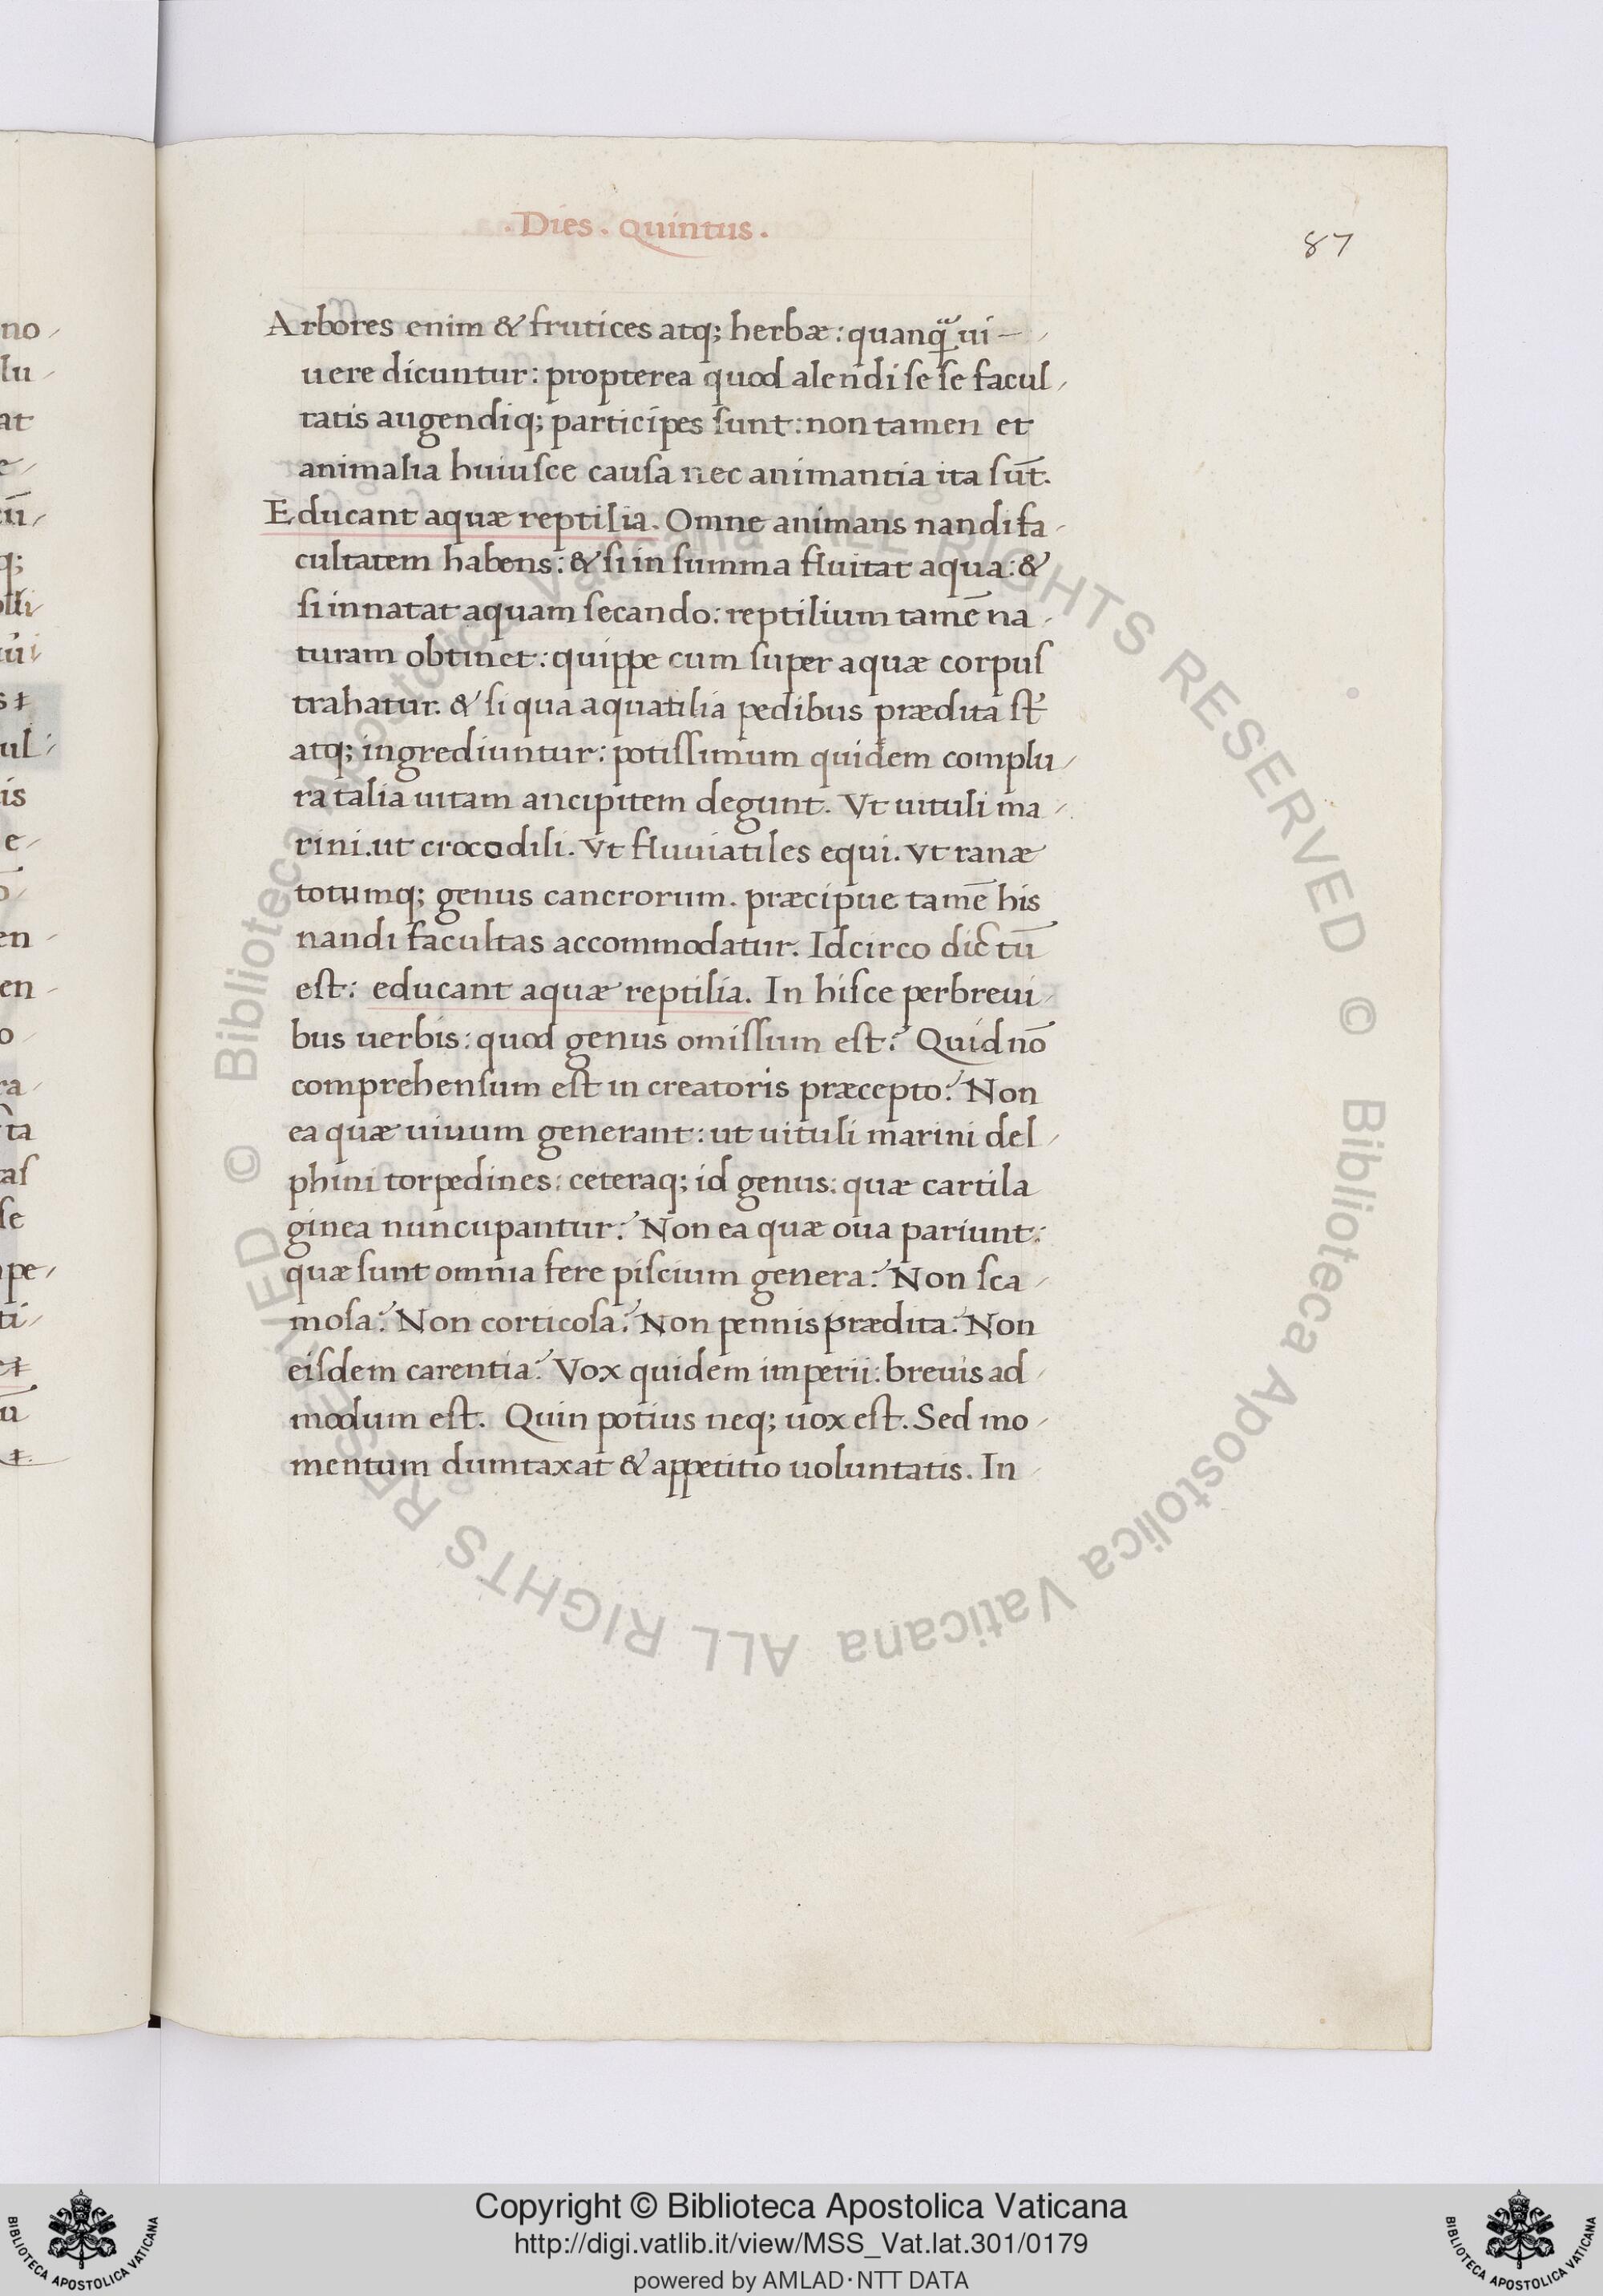 .Dies. Quintus.
87
Arbores enim & frutices atq; herbæ: quanq̃ ui-
uere dicuntur: propterea quod alendi se se facul
tatis augendiq; participes sunt: non tamen et
animalia huiusce causa nec animantia ita sūt.
Educant aquæ reptilia. Omne animans nandi fa
cultatem habens: & si in summa fluitat aqua: &
si innatat aquam secando: reptilium tamē na
turam obtinet: quippe cum super aquæ corpus
trahatur. & si qua aquatilia pedibus prædita st̄
atq; ingrediuntur: potissimum quidem complu
ra talia uitam ancipitem degunt. Vt uituli ma
rini. ut crocodili. Vt fluuiatiles equi. vt ranæ
totumq; genus cancrorum. præcipue tamē his
nandi facultas accommodatur. Idcirco dictū
est: educant aquæ reptilia. In hisce perbreui
bus uerbis: quod genus omissum est? Quid nō
comprehensum est in creatoris præcepto? Non
ea quæ uiuum generant: ut uituli marini del
phini torpedines: ceteraq; id genus: quæ cartila
ginea nuncupantur? Non ea quæ oua pariunt:
quæ sunt omnia fere piscium genera? Non sca
mosa? Non corticosa? Non pennis prædita? Non
eisdem carentia? Vox quidem imperii: breuis ad
modum est. Quin potius neq; uox est. Sed mo
mentum dumtaxat & appetitio uoluntatis. In
© Biblioteca Apostolica Vaticana ALL RIGHTS RESERVED © Biblioteca Apostolica Vaticana ALL RIGHTS RESERVED
Copyright © Biblioteca Apostolica Vaticana
http://digi.vatlib.it/view/MSS_Vat.lat.301/0179
powered by AMLAD·NTT DATA
BIBLIOTECA APOSTOLICA VATICANA
BIBLIOTECA APOSTOLICA VATICANA